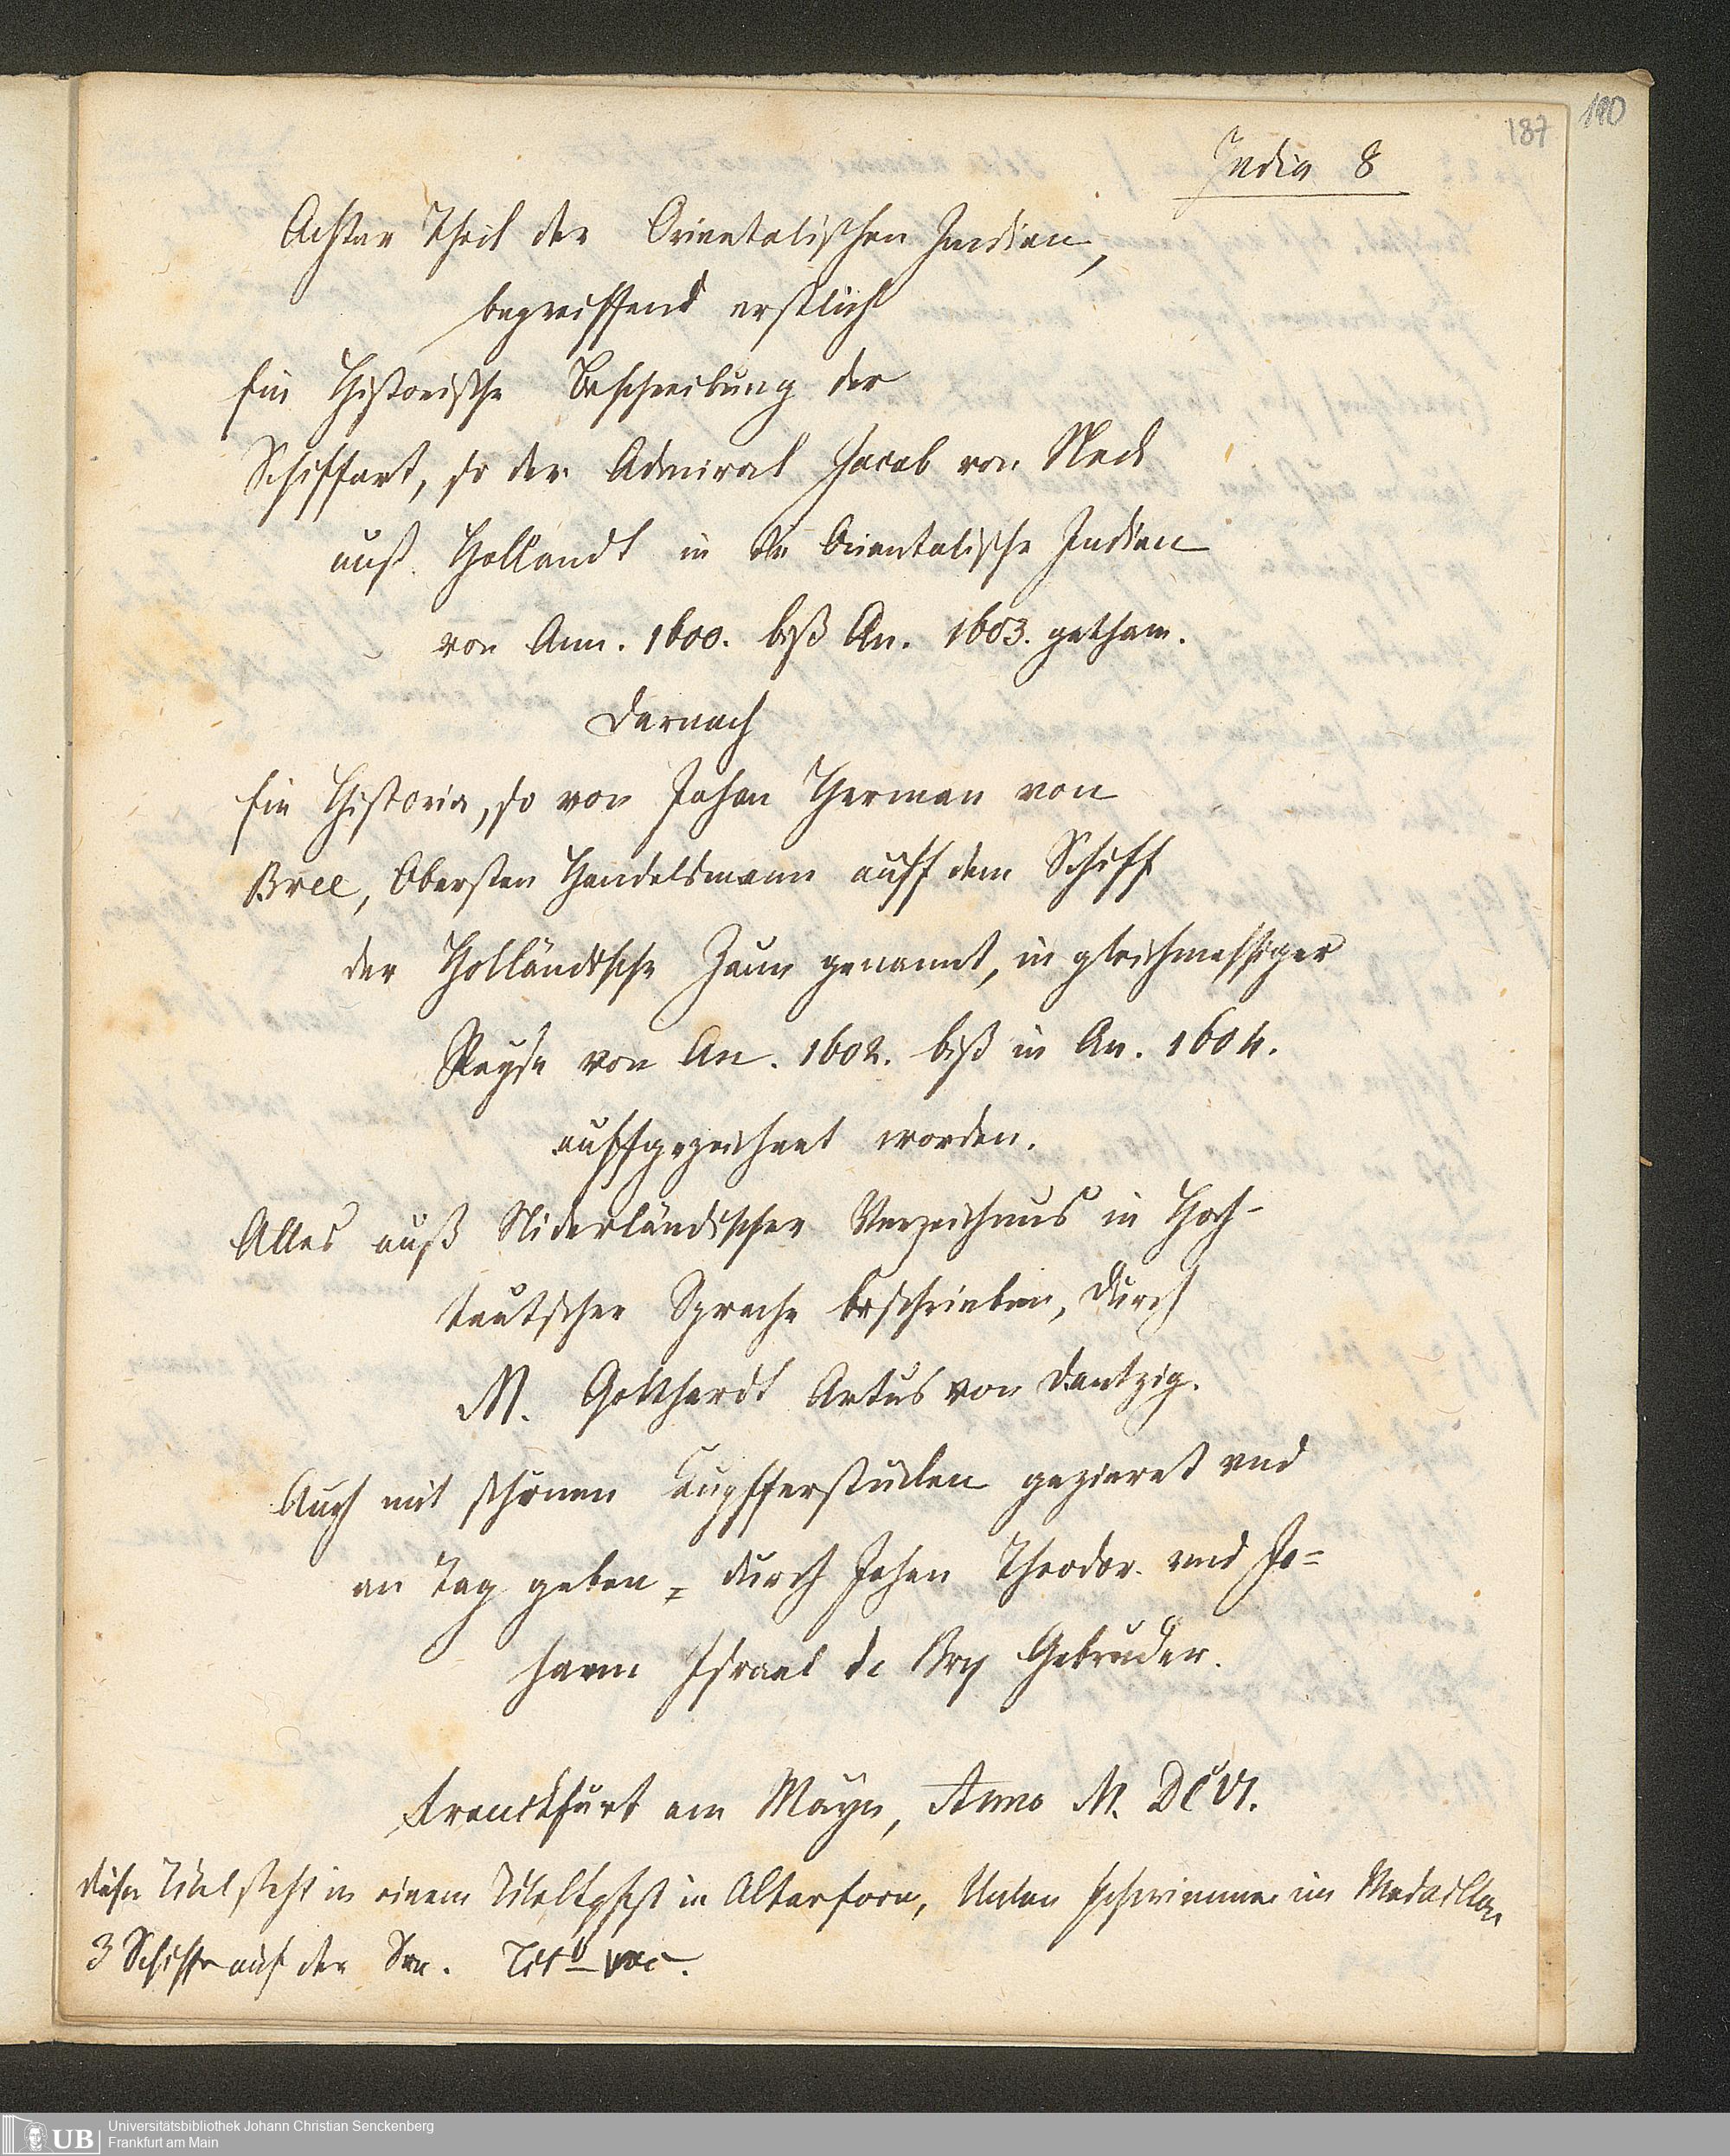 190
187
India 8
Achter Theil der Orientalischen Indien,
begreiffend erstlich
Ein Historische Beschreibung der
Schiffart, so der Admiral Jacob von Neck
auß Hollandt in die Orientalische Indien
von Ann. 1600. biß An. 1603. gethan.
Darnach
Ein Historia, so von Johan Herman von
Bree, Obersten Handelsmann auff dem Schiff
der Holländische Zaun genannt, in gleichmessiger
Reyse von An. 1602. biß in An. 1604.
auffgezeichnet worden.
Alles auß Niderländischer Verzeichnus in Hoch-
teutscher Sprache beschrieben, durch
M. Gotthardt Artus von Dantzig.
Auch mit schönen Kupfferstücken gezieret vnd
an Tag geben, durch Johan Theodor. vnd Jo-
hann Israel de Bry Gebrüder.
Franckfurt am Mayn, Anno M. DCVI.
Dieser Titel steht in einem in Altarform, Unten schwimmen im Medaillon
3 Schiffe auf der See. Tit vac.
Universitätsbibliothek Johann Christian Senckenberg
UB Frankfurt am Main